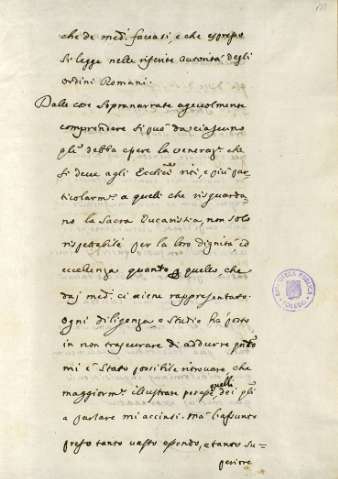 che de med.ⁱ facciasi, e che espresso
si legge nelle riferite autorità degli
Ordini Romani.
Dalle cose sopranarrate agevolmente
comprendere si può da ciascuno
debba essere la veneraz.ᵉ che
si deve agli riti, e più par
ticolarm.ᵉ a quelli che risguarda
no la Sacra Eucaristia, non solo
rispettabile per la loro dignità ed
eccellenza quanto quello, che
da i med.ⁱ ci viene rappresentato.
Ogni diligenza e Studio ha posto
in non trascurare di addurre
mi è stato possibile ritrovare, che
maggiorm.ᵉ illustrar quelli dei
a parlare mi accinsi. Ma l'assunto
preso tanto vasto essendo, e tanto su=
periore
BIBLIOTECA PUBLICA
TOLEDO